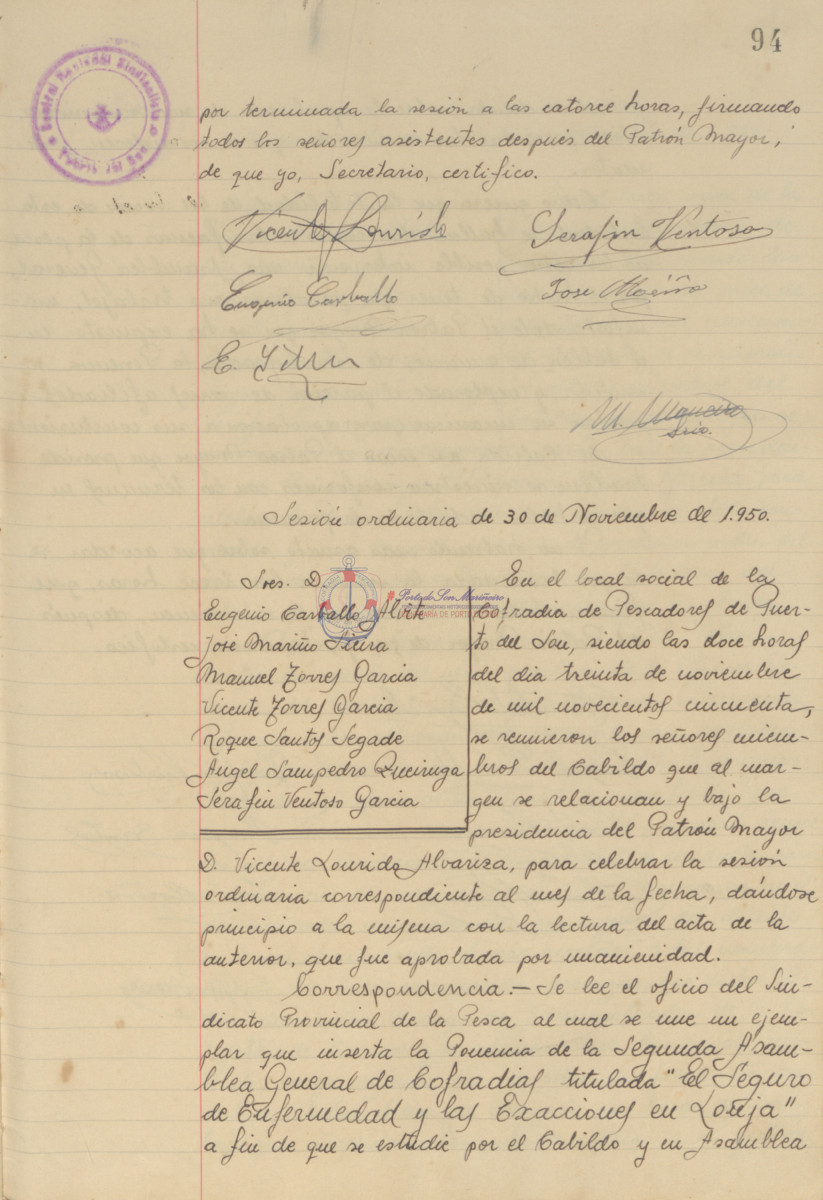 94
Central Nacional Sindicalista
Puerto del Son
por terminada la sesión a las catorce horas, firmando
todos los señores asistentes después del Patrón Mayor,
de que yo, Secretario, certifico.
Vicente Lourido
Serafin Ventoso
Eugenio Carballo
Jose Mariño
E.
M.
Srio.
Sesión ordinaria de 30 de Noviembre de 1.950.
Sres. D.
Eugenio Carballo Alvite
José Mariño
Manuel Torres Garcia
Vicente Torres Garcia
Roque Santos Segade
Angel Sampedro Queiruga
Serafin Ventoso Garcia
Porto do Son Mariñeiro
En el local social de la
Cofradia de Pescadores de Puer-
to del Son, siendo las doce horas
del dia treinta de noviembre
de mil novecientos cincuenta,
se reunieron los señores miem-
bros del Cabildo que al mar-
gen se relacionan y bajo la
presidencia del Patrón Mayor
D. Vicente Lourido Alvariza, para celebrar la sesión
ordinaria correspondiente al mes de la fecha, dándose
principio a la misma con la lectura del acta de la
anterior, que fue aprobada por unanimidad.
Correspondencia.- Se lee el oficio del Sin-
dicato Provincial de la Pesca al cual se une un ejem-
plar que inserta la Ponencia de la Segunda Asam-
blea General de Cofradias titulada "El Seguro
de Enfermedad y las Exacciones en Lonja"
a fin de que se estudie por el Cabildo y en Asamblea